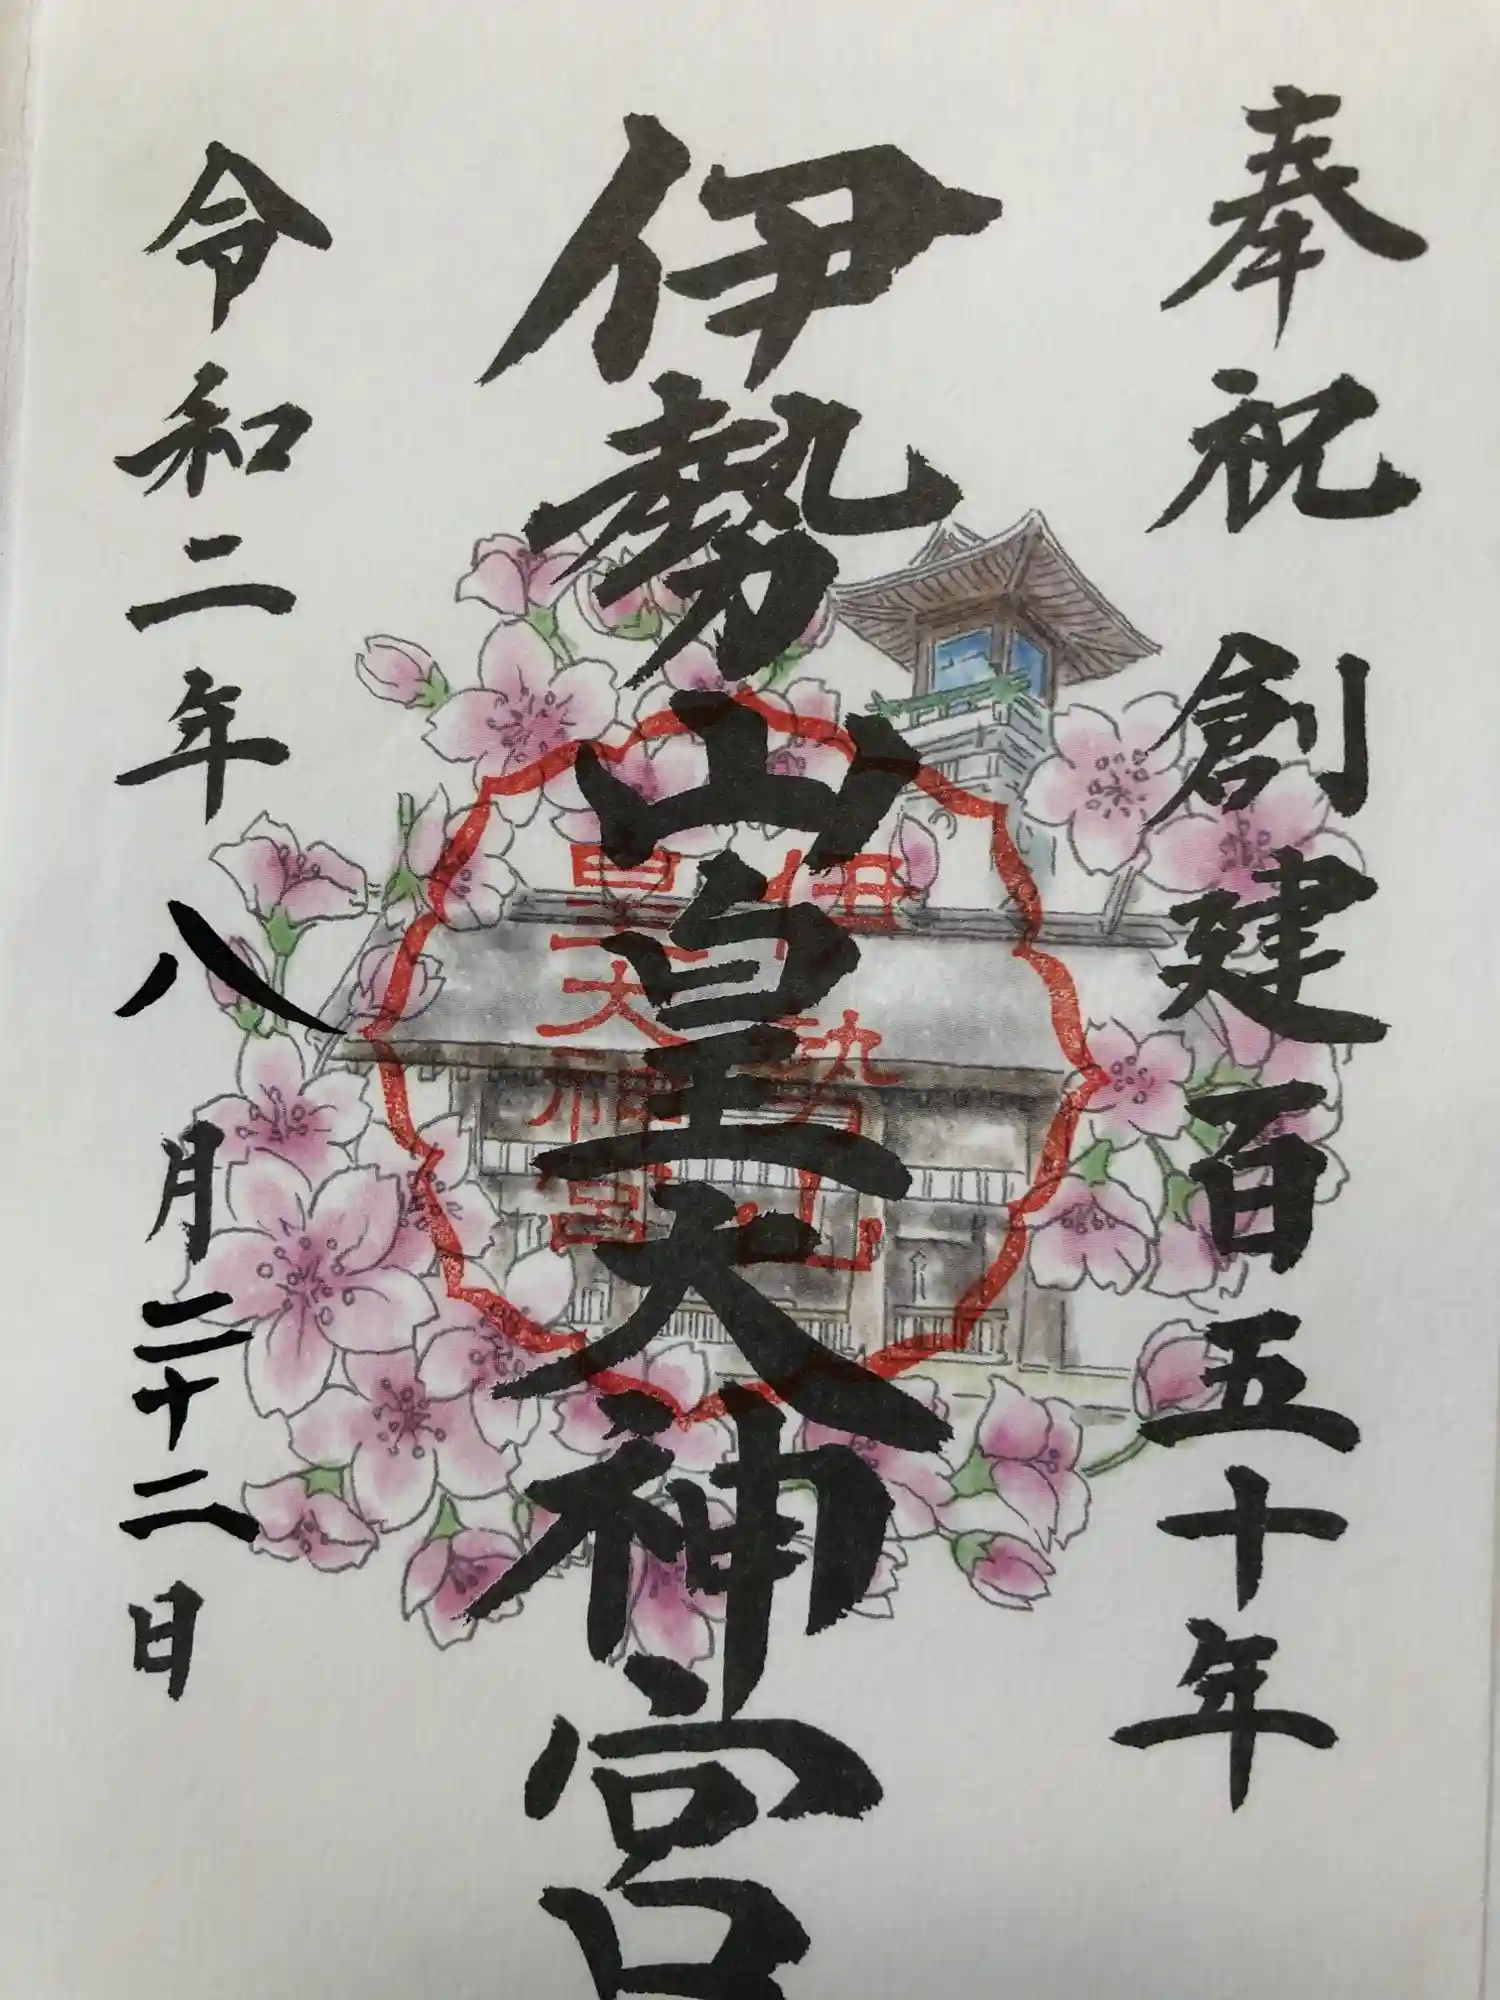 奉祝 創建百五十年
伊勢山皇大神宮
伊勢山
皇大神宮
令和二年八月二十二日